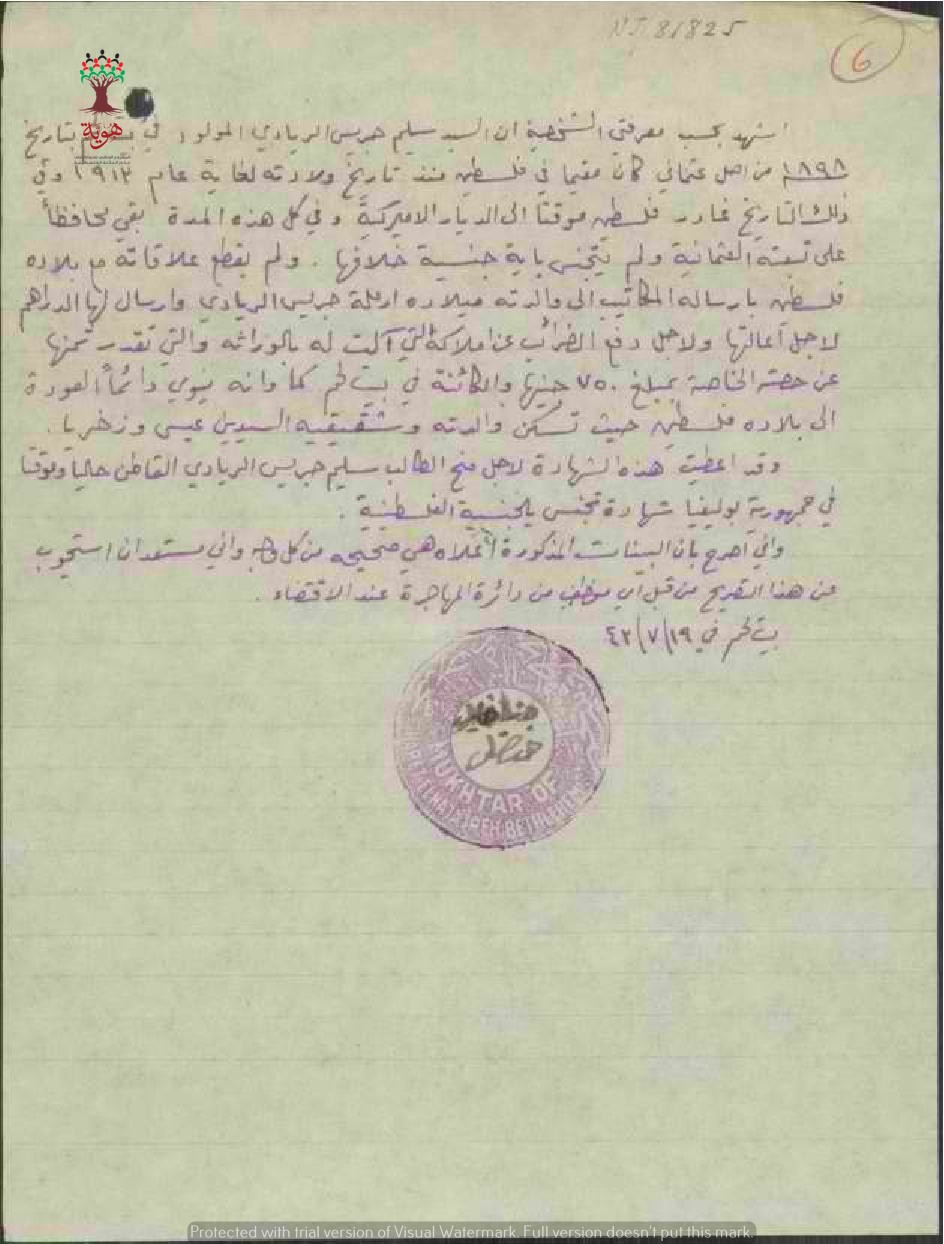 NT. 81825
6
هوية
اشهد بحسب معرفتي الشخصية ان السيد سليم جريس الريادي المولود في بتاريخ
١٨٩٨ من اصل عثماني كان مقيما في فلسطين منذ تاريخ ولادته لغاية عام ١٩١٣ وفي
ذلك التاريخ غادر فلسطين موقتا الى الديار الاميركية وفي كل هذه المدة بقي محافظاً
على تبعته العثمانية ولم يتجنس باية جنسية خلافها . ولم يقطع علاقاته مع بلاده
فلسطين بارساله المكاتيب الى والدته ميلاده ارملة جريس الريادي وارسال لها الدراهم
لاجل اعالتها ولاجل دفع الضرائب عن املاكه التي آلت له بالوراثه والتي تقدر ثمنها
عن حصته الخاصة بمبلغ ٧٥٠ جنيها والكائنة في بيت لحم كما وانه ينوي دائماً العودة
الى بلاده فلسطين حيث تسكن والدته وشقيقيه السيدين عيسى وزخريا .
وقد اعطيت هذه الشهادة لاجل منح الطالب سليم جريس الريادي القاطن حاليا وموقتا
في جمهورية بوليفيا شهادة تجنس بالجنسية الفلسطينية .
واني اصرح بان البينات المذكورة اعلاه هي صحيحه من كل وجه واني مستعد ان استجوب
عن هذا التصريح من قبل اي موظف من دائرة المهاجرة عند الاقتضاء .
بيت لحم في ١٩/٧/٤٢
MUKHTAR OF
BETHLEHEM
Protected with trial version of Visual Watermark. Full version doesn't put this mark.